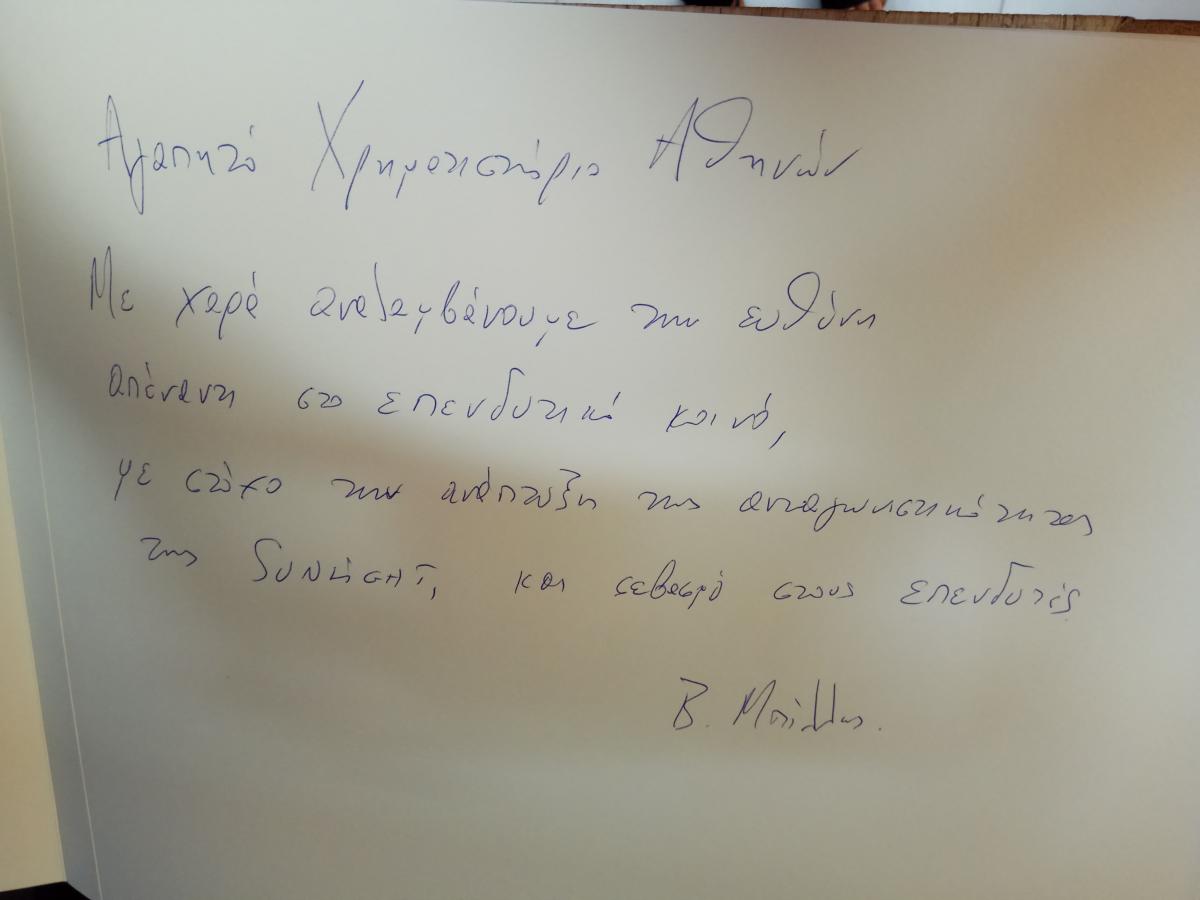 Αγαπητό Χρηματιστήριο Αθηνών
Με χαρά αναλαμβάνουμε την ευθύνη
απέναντι στο επενδυτικό κοινό,
με στόχο την ανάπτυξη της ανταγωνιστικότητας
της SUNLIGHT, και σεβασμό στους επενδυτές
Β. Μπίλλης.